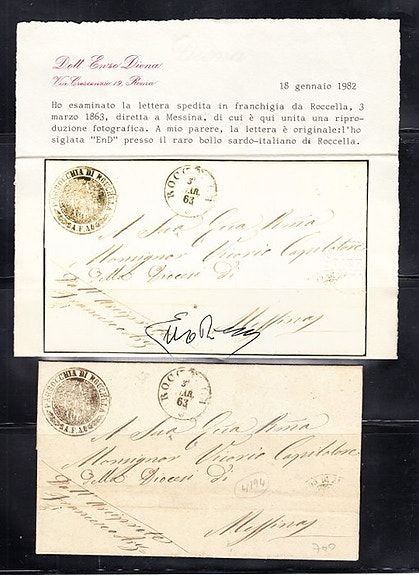 Dott. Enzo Diena
Via Crescenzio 19, Roma
18 gennaio 1982
Ho esaminato la lettera spedita in franchigia da Roccella, 3
marzo 1863, diretta a Messina, di cui è qui unita una ripro-
duzione fotografica. A mio parere, la lettera è originale:l'ho
siglata "EnD" presso il raro bollo sardo-italiano di Roccella.
3
MAR.
63
A Sua Ecc.a Rma
Monsignor Vicario Capitolare
della Diocesi di
Messina
3
MAR.
63
A Sua Ecc.a Rma
Monsignor Vicario Capitolare
della Diocesi di
4194
Messina
700